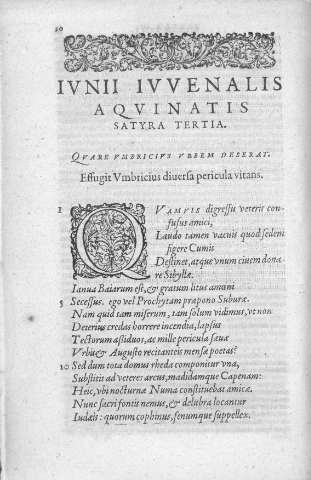 20
IVNII IVVENALIS
AQVINATIS
SATYRA TERTIA.
QVARE VMBRICIVS VRBEM DESERAT.
Effugit Vmbricius diuersa pericula vitans.
1 QVAMVIS digressu veteris con-
fusus amici,
Laudo tamen vacuis quod sedem
figere Cumis
Destinet, atque vnum ciuem dona-
re Sibyllæ.
Ianua Baiarum est, & gratum litus amœni
5 Secessus. ego vel Prochytam præpono Suburæ.
Nam quid tam miserum, tam solum vidimus, vt non
Deterius credas horrere incendia, lapsus
Tectorum assiduos, ac mille pericula sæuæ
Vrbis, & Augusto recitanteis mense poëtas?
10 Sed dum tota domus rheda componitur vna,
Substitit ad veteres arcus, madidamque Capenam:
Heic, vbi nocturnæ Numa constituebat amicæ.
Nunc sacri fontis nemus, & delubra locantur
Iudæis: quorum cophinus, fœnumque suppellex.